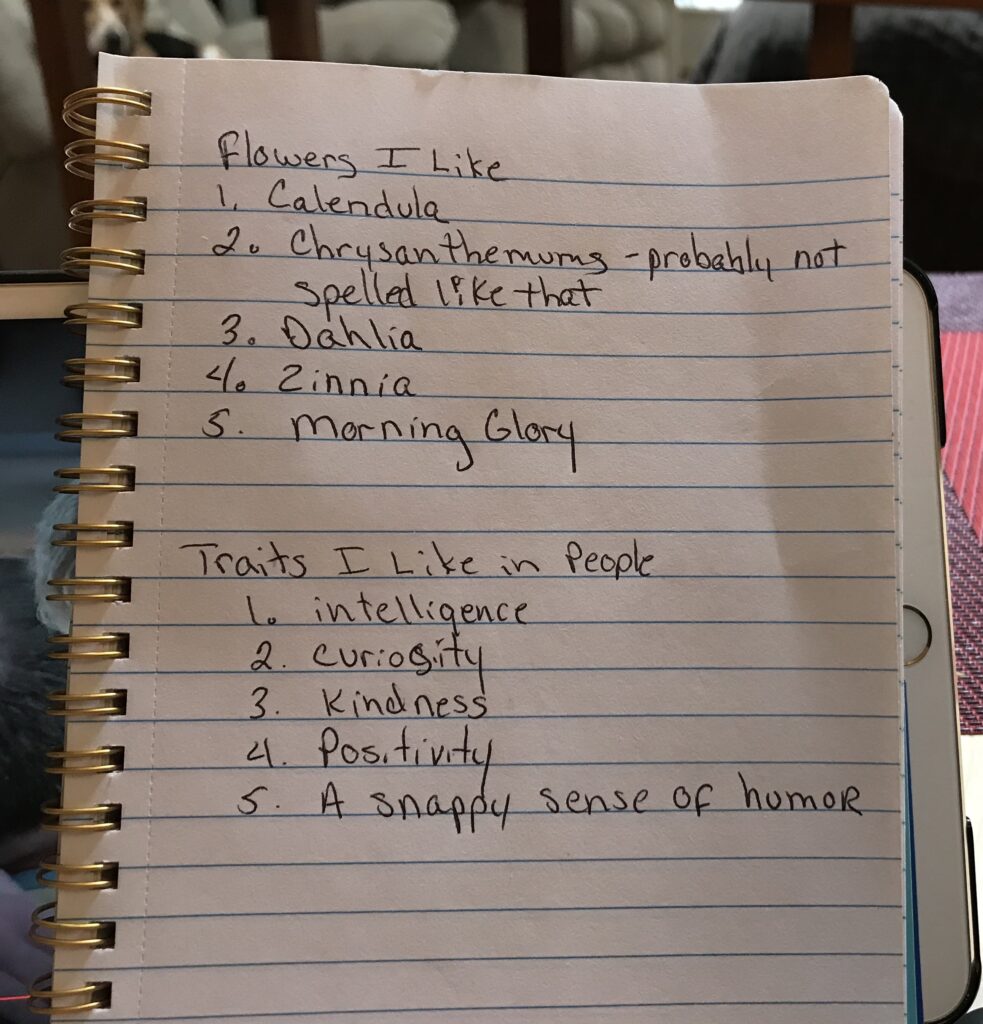 Flowers I Like
1. Calendula
2. Chrysanthemums - probably not
spelled like that
3. Dahlia
4. Zinnia
5. Morning Glory
Traits I Like in People
1. intelligence
2. curiosity
3. Kindness
4. Positivity
5. A snappy sense of humor